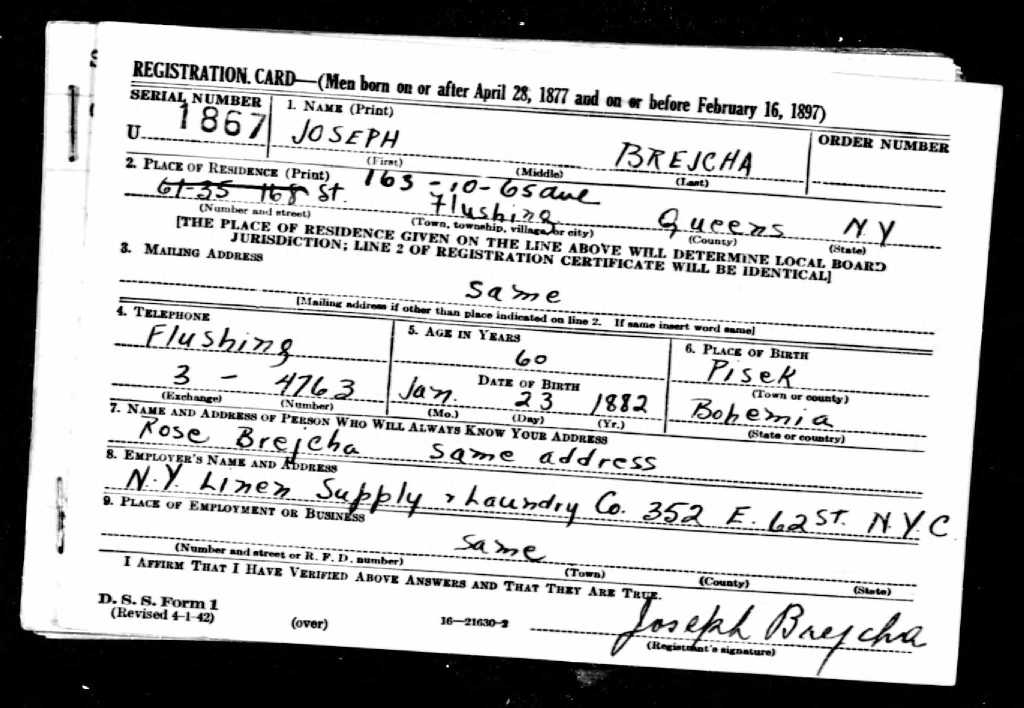 REGISTRATION CARD—(Men born on or after April 28, 1877 and on or before February 16, 1897)
SERIAL NUMBER
1. NAME (Print)
ORDER NUMBER
U 1867
JOSEPH BREJCHA
(First) (Middle) (Last)
2. PLACE OF RESIDENCE (Print)
163-10-65 ave
61-35 168 St. Flushing Queens N Y
(Number and street) (Town, township, village, or city) (County) (State)
[THE PLACE OF RESIDENCE GIVEN ON THE LINE ABOVE WILL DETERMINE LOCAL BOARD
JURISDICTION; LINE 2 OF REGISTRATION CERTIFICATE WILL BE IDENTICAL]
3. MAILING ADDRESS
Same
[Mailing address if other than place indicated on line 2. If same insert word same]
4. TELEPHONE
Flushing
3 - 4763
(Exchange) (Number)
5. AGE IN YEARS
60
DATE OF BIRTH
Jan. 23 1882
(Mo.) (Day) (Yr.)
6. PLACE OF BIRTH
Pisek
(Town or county)
Bohemia
(State or country)
7. NAME AND ADDRESS OF PERSON WHO WILL ALWAYS KNOW YOUR ADDRESS
Rose Brejcha Same address
8. EMPLOYER'S NAME AND ADDRESS
N.Y Linen Supply & Laundry Co. 352 E. 62 ST. N.Y.C
9. PLACE OF EMPLOYMENT OR BUSINESS
Same
(Number and street or R. F. D. number) (Town) (County) (State)
I AFFIRM THAT I HAVE VERIFIED ABOVE ANSWERS AND THAT THEY ARE TRUE.
D. S. S. Form 1
(Revised 4-1-42)
(over)
16—21630-2
Joseph Brejcha
(Registrant's signature)